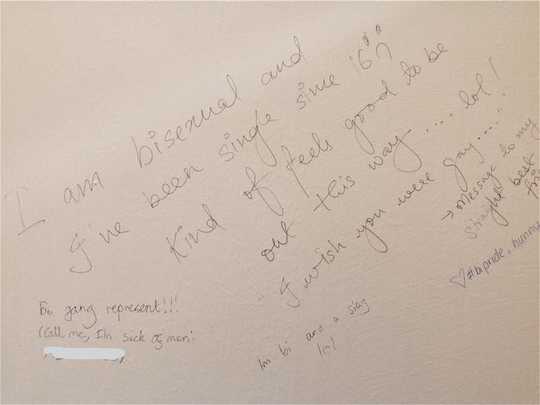 I am bisexual and
I've been single since '16??
Kind of feels good to be
out this way.... lol!
"I wish you were gay....."
→ Message to my
straight best
♡ #bipride
Bi gang represent!!!
(Call me, I'm sick of men:
Im bi and a slag
lol